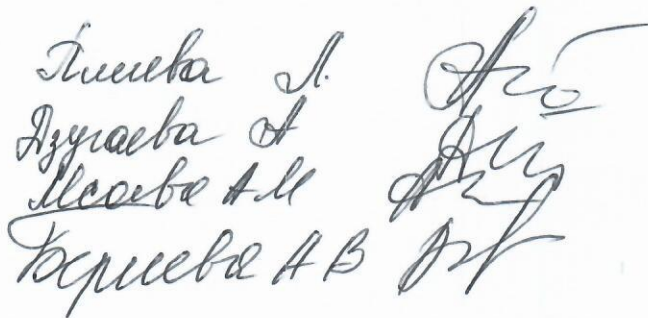 Плиева Л.
Дзугаева А
Исаева А М
Бериева А В